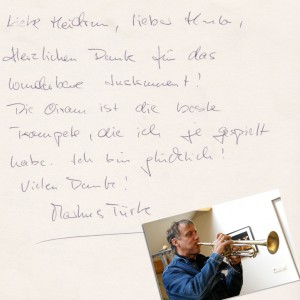 Liebe Meidrun, lieber
Herzlichen Dank für das
wunderbare Instrument!
Die Oiram ist die beste
Trompete, die ich je gespielt
habe. Ich bin glücklich!
Vielen Dank!
Markus Türk